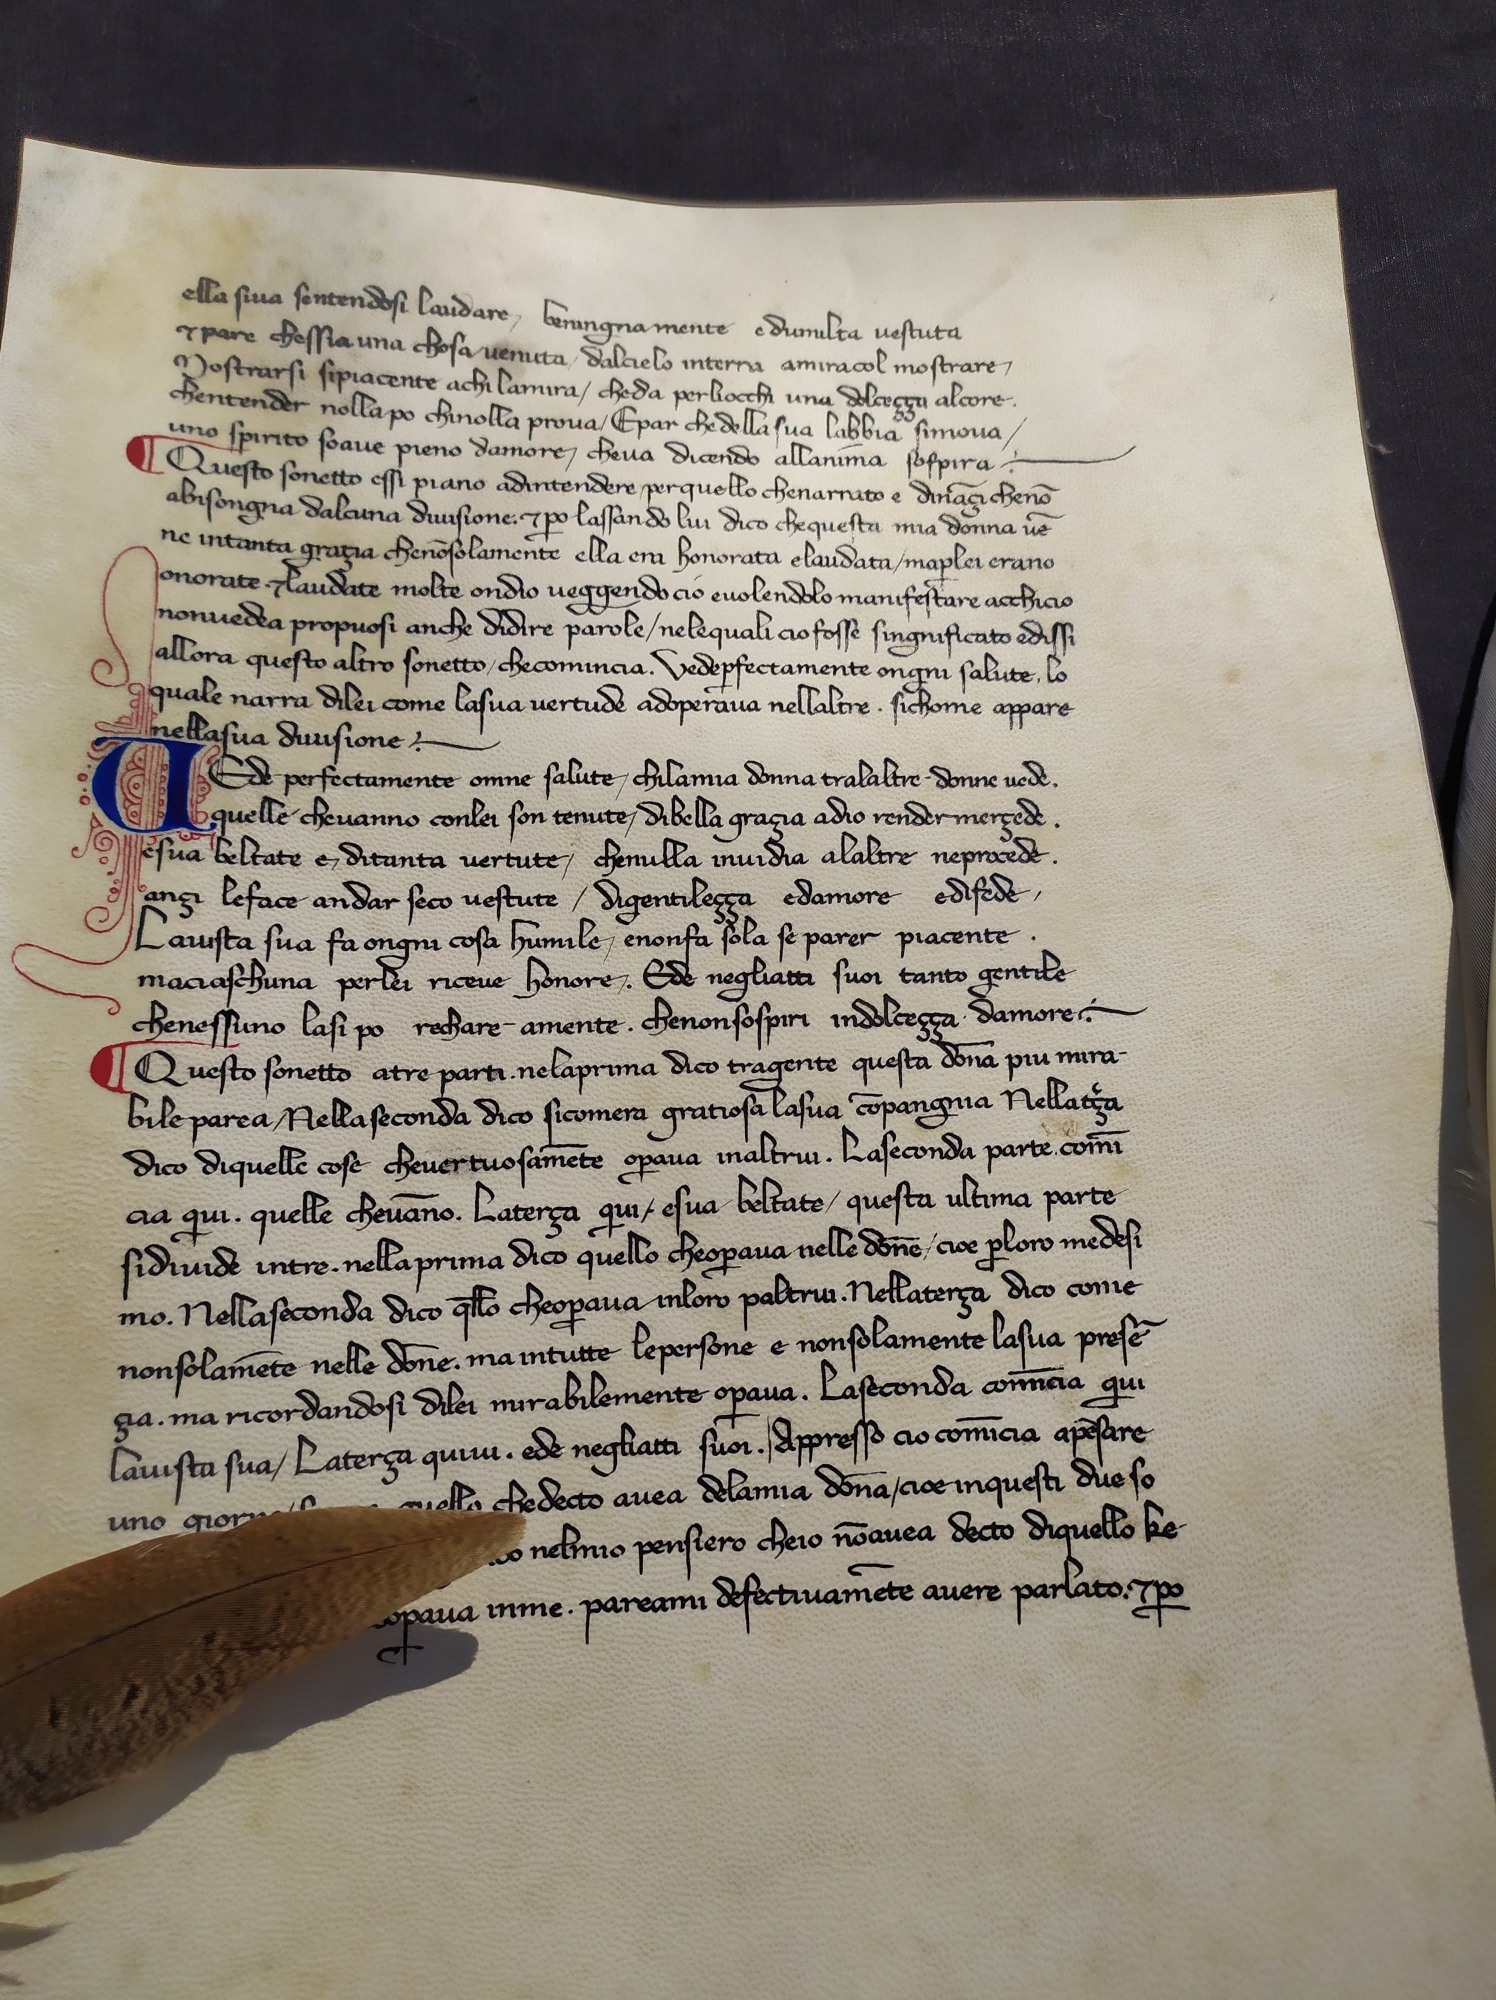 ella siua sentendosi laudare, beningnamente e dumilta uestuta
⁊ pare chessia una chosa uenuta / dalcielo interra amiracol mostrare,
Mostrarsi sipiacente achi lamira / cheda perliocchi una dolceçça alcore.
chentender nolla po chinolla proua / Epar chedella sua labbia simoua /
uno spirito soaue pieno damore, cheua dicendo allanima sospira :
¶ Questo sonetto essi piano adintendere, perquello chenarrato e dināçi chenō
abisongna dalcuna diuisione. ⁊ po lassando lui dico chequesta mia donna uē
ne intanta graçia chenōsolamente ella era honorata elaudata / maꝑlei erano
onorate. ⁊ laudate molte ondio ueggendo ció euolendolo manifestare acchicio
nonuedea propuosi anche didire parole / nelequali cio fosse singnificato edissi
allora questo altro sonetto, checomincia. Vedeꝑfectamente ongni salute. lo
quale narra dilei come lasua uertude adoperaua nellaltre. sichome appare
nellasua diuisione :
UEde perfectamente omne salute, chilamia donna tralaltre donne uede.
quelle cheuanno conlei son tenute, dibella graçia adio render merçede.
esua beltate e, ditanta uertute, chenulla inuidia alaltre neprocede.
ançi leface andar seco uestute / digentileçça edamore edifede,
Lauista sua fa ongni cosa humile, enonfa sola se parer piacente.
maciaschuna perlei riceue honore. Ede negliatti suoi tanto gentile
chenessuno lasi po rechare amente. chenonsospiri indolceçça damore :
¶ Questo sonetto atre parti. nelaprima dico tragente questa dōna piu mira-
bile parea / Nellaseconda dico sicomera gratiosa lasua cōpangnia Nellatça
dico diquelle cose cheuertuosamēte oꝑaua inaltrui. Laseconda parte. comī
cia qui. quelle cheuāno. Laterça qui, esua beltate, questa ultima parte
sidiuide intre. nellaprima dico quello cheoꝑaua nelle dōne, cioe ꝑloro medesi
mo. Nellaseconda dico qllo cheoꝑaua inloro ꝑaltrui. Nellaterça dico come
nonsolamēte nelle dōne. ma intutte lepersone e nonsolamente lasua presē
ça. ma ricordandosi dilei mirabilemente oꝑaua. Laseconda comīcia qui
lauista sua / Laterça quiui. ede negliatti suoi. Appresso cio comīcia apēsare
uno quello chedecto auea delamia dōna / cioe inquesti due so
nelmio pensiero cheio nōauea decto diquello ke
oꝑaua inme. pareami defectiuamēte auere parlato. ⁊ ꝑo